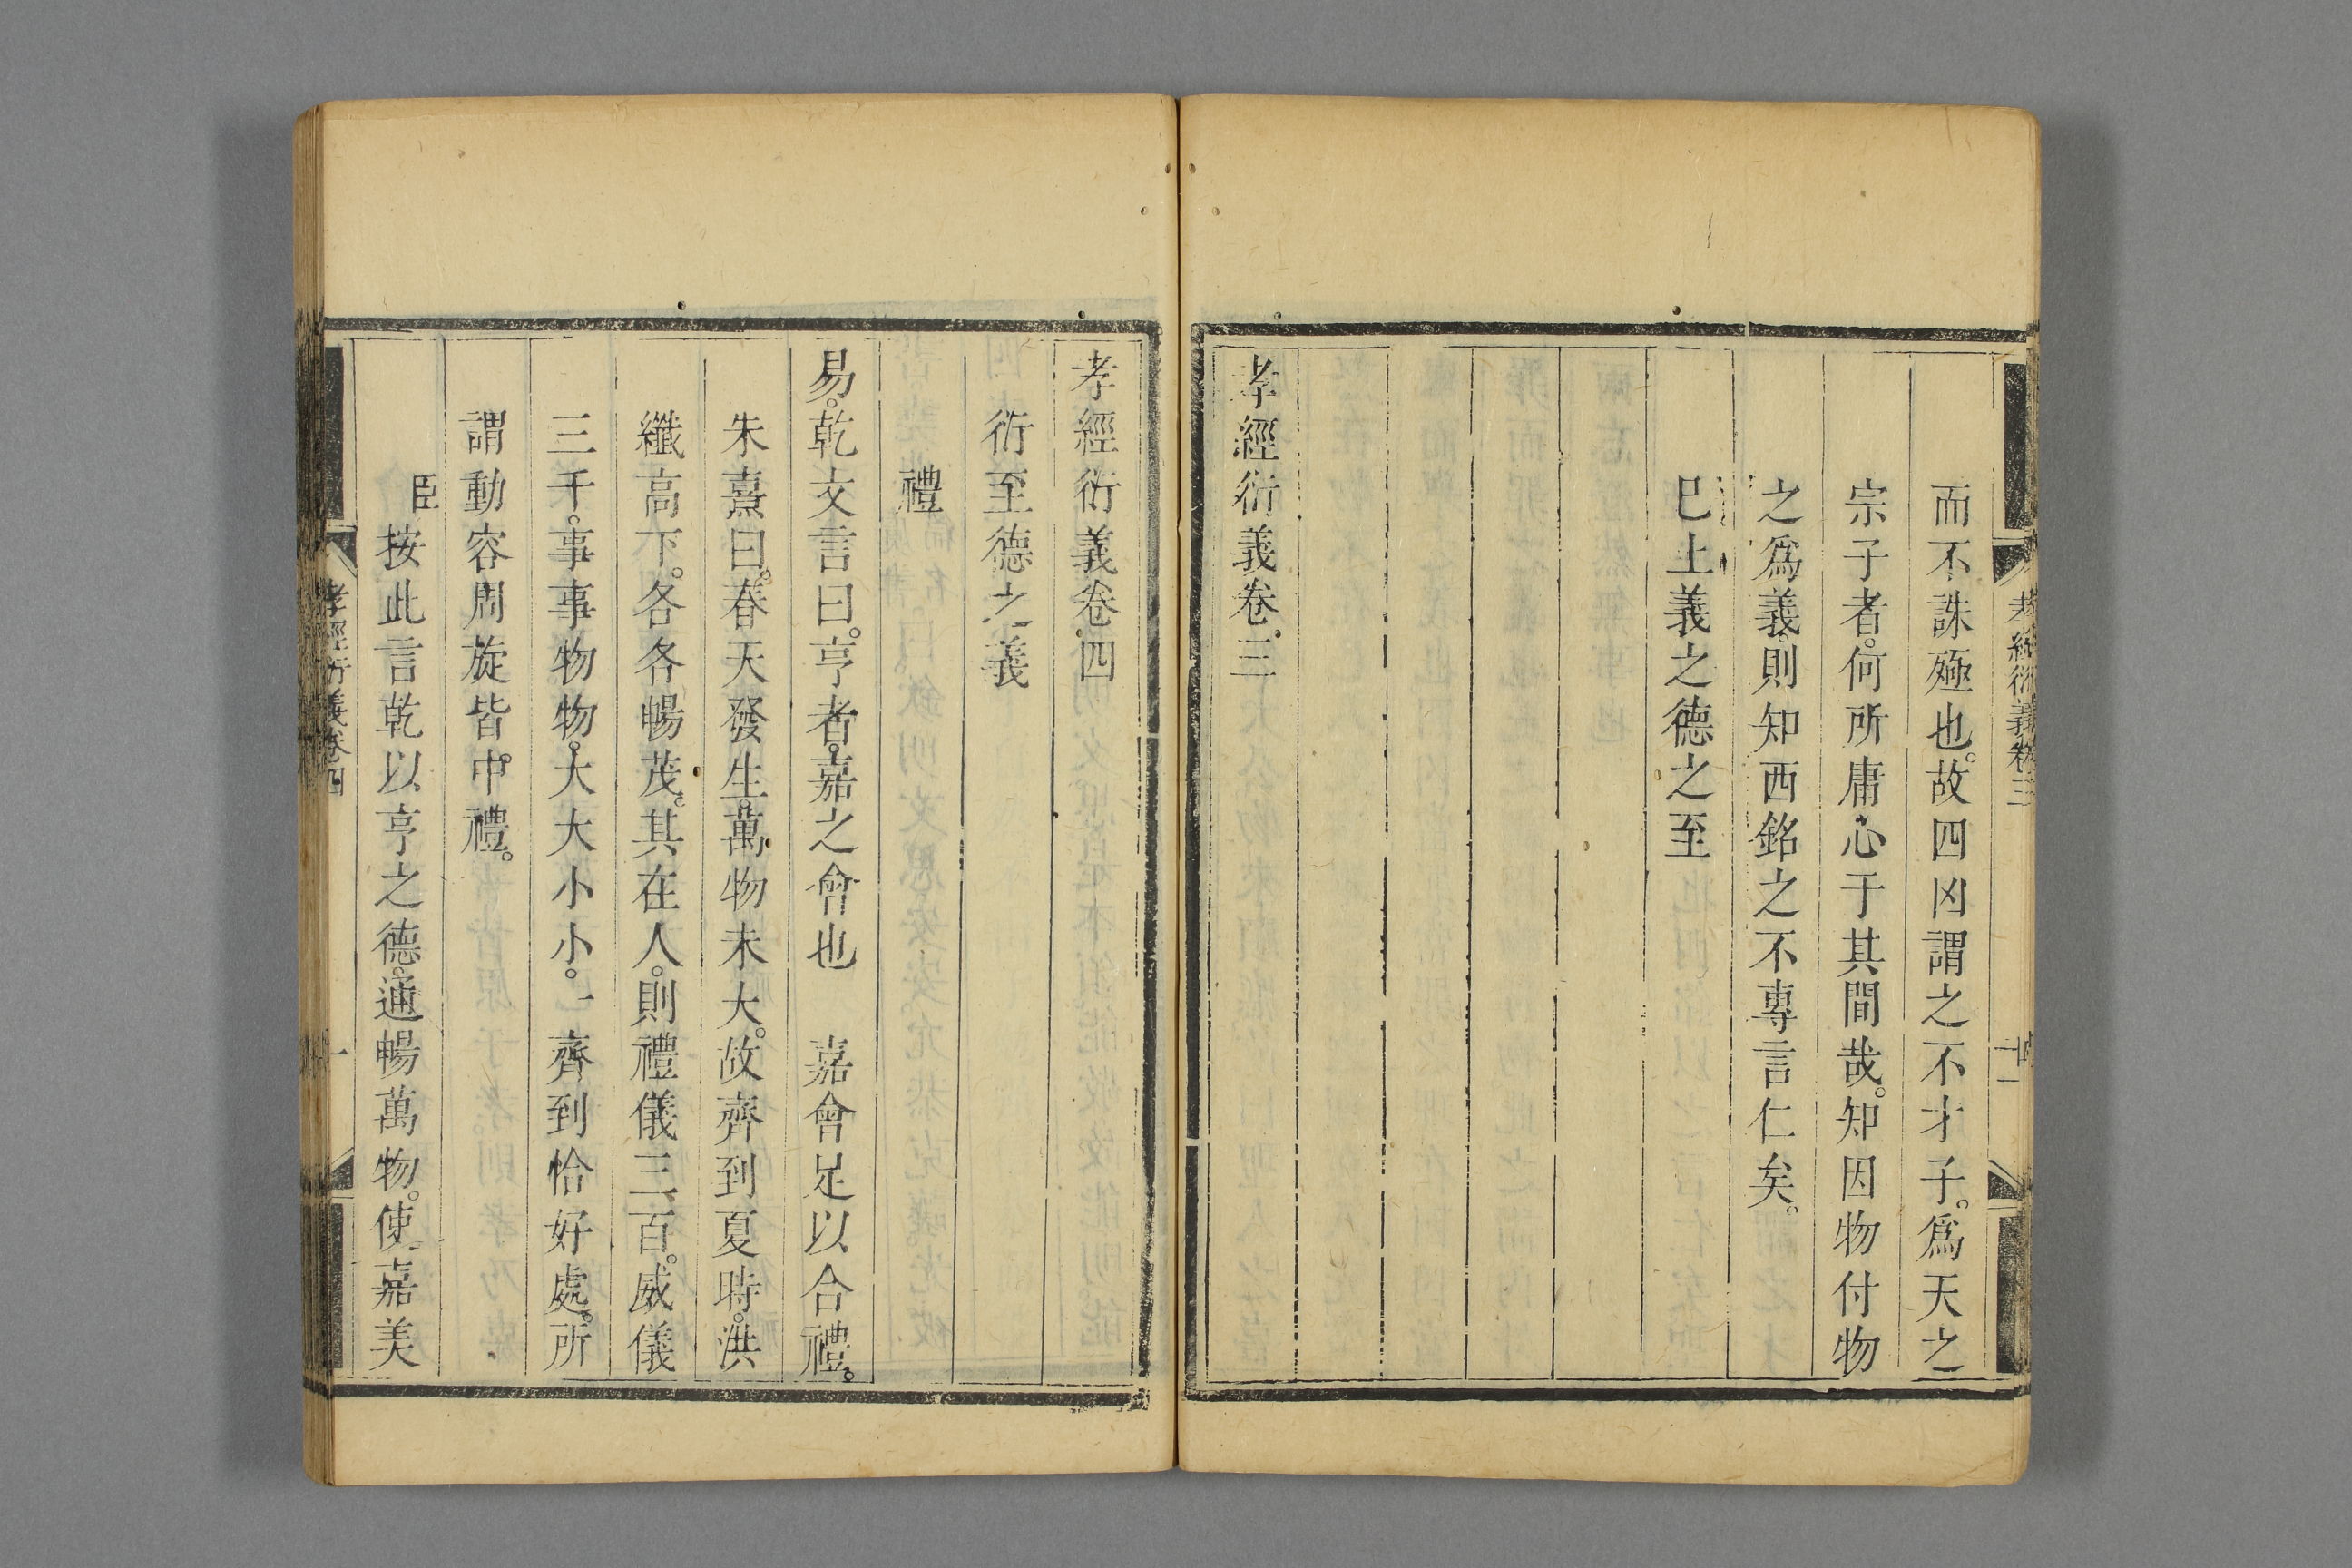 而不誅殛也。故四凶謂之不才子。爲天之
宗子者。何所庸心于其間哉。知因物付物
之爲義。則知西銘之不專言仁矣。
已上義之德之至
孝經衍義卷三
孝經衍義卷四
衍至德之義
禮
易。乾文言曰。亨者。嘉之會也 嘉會足以合禮。
朱熹曰。春天發生。萬物未大。故齊到夏時。洪
纖高下。各各暢茂。其在人。則禮儀三百。威儀
三千。事事物物。大大小小。一齊到恰好處。所
謂動容周旋皆中禮。
臣按此言乾以亨之德。通暢萬物。使嘉美
孝經衍義卷四
一